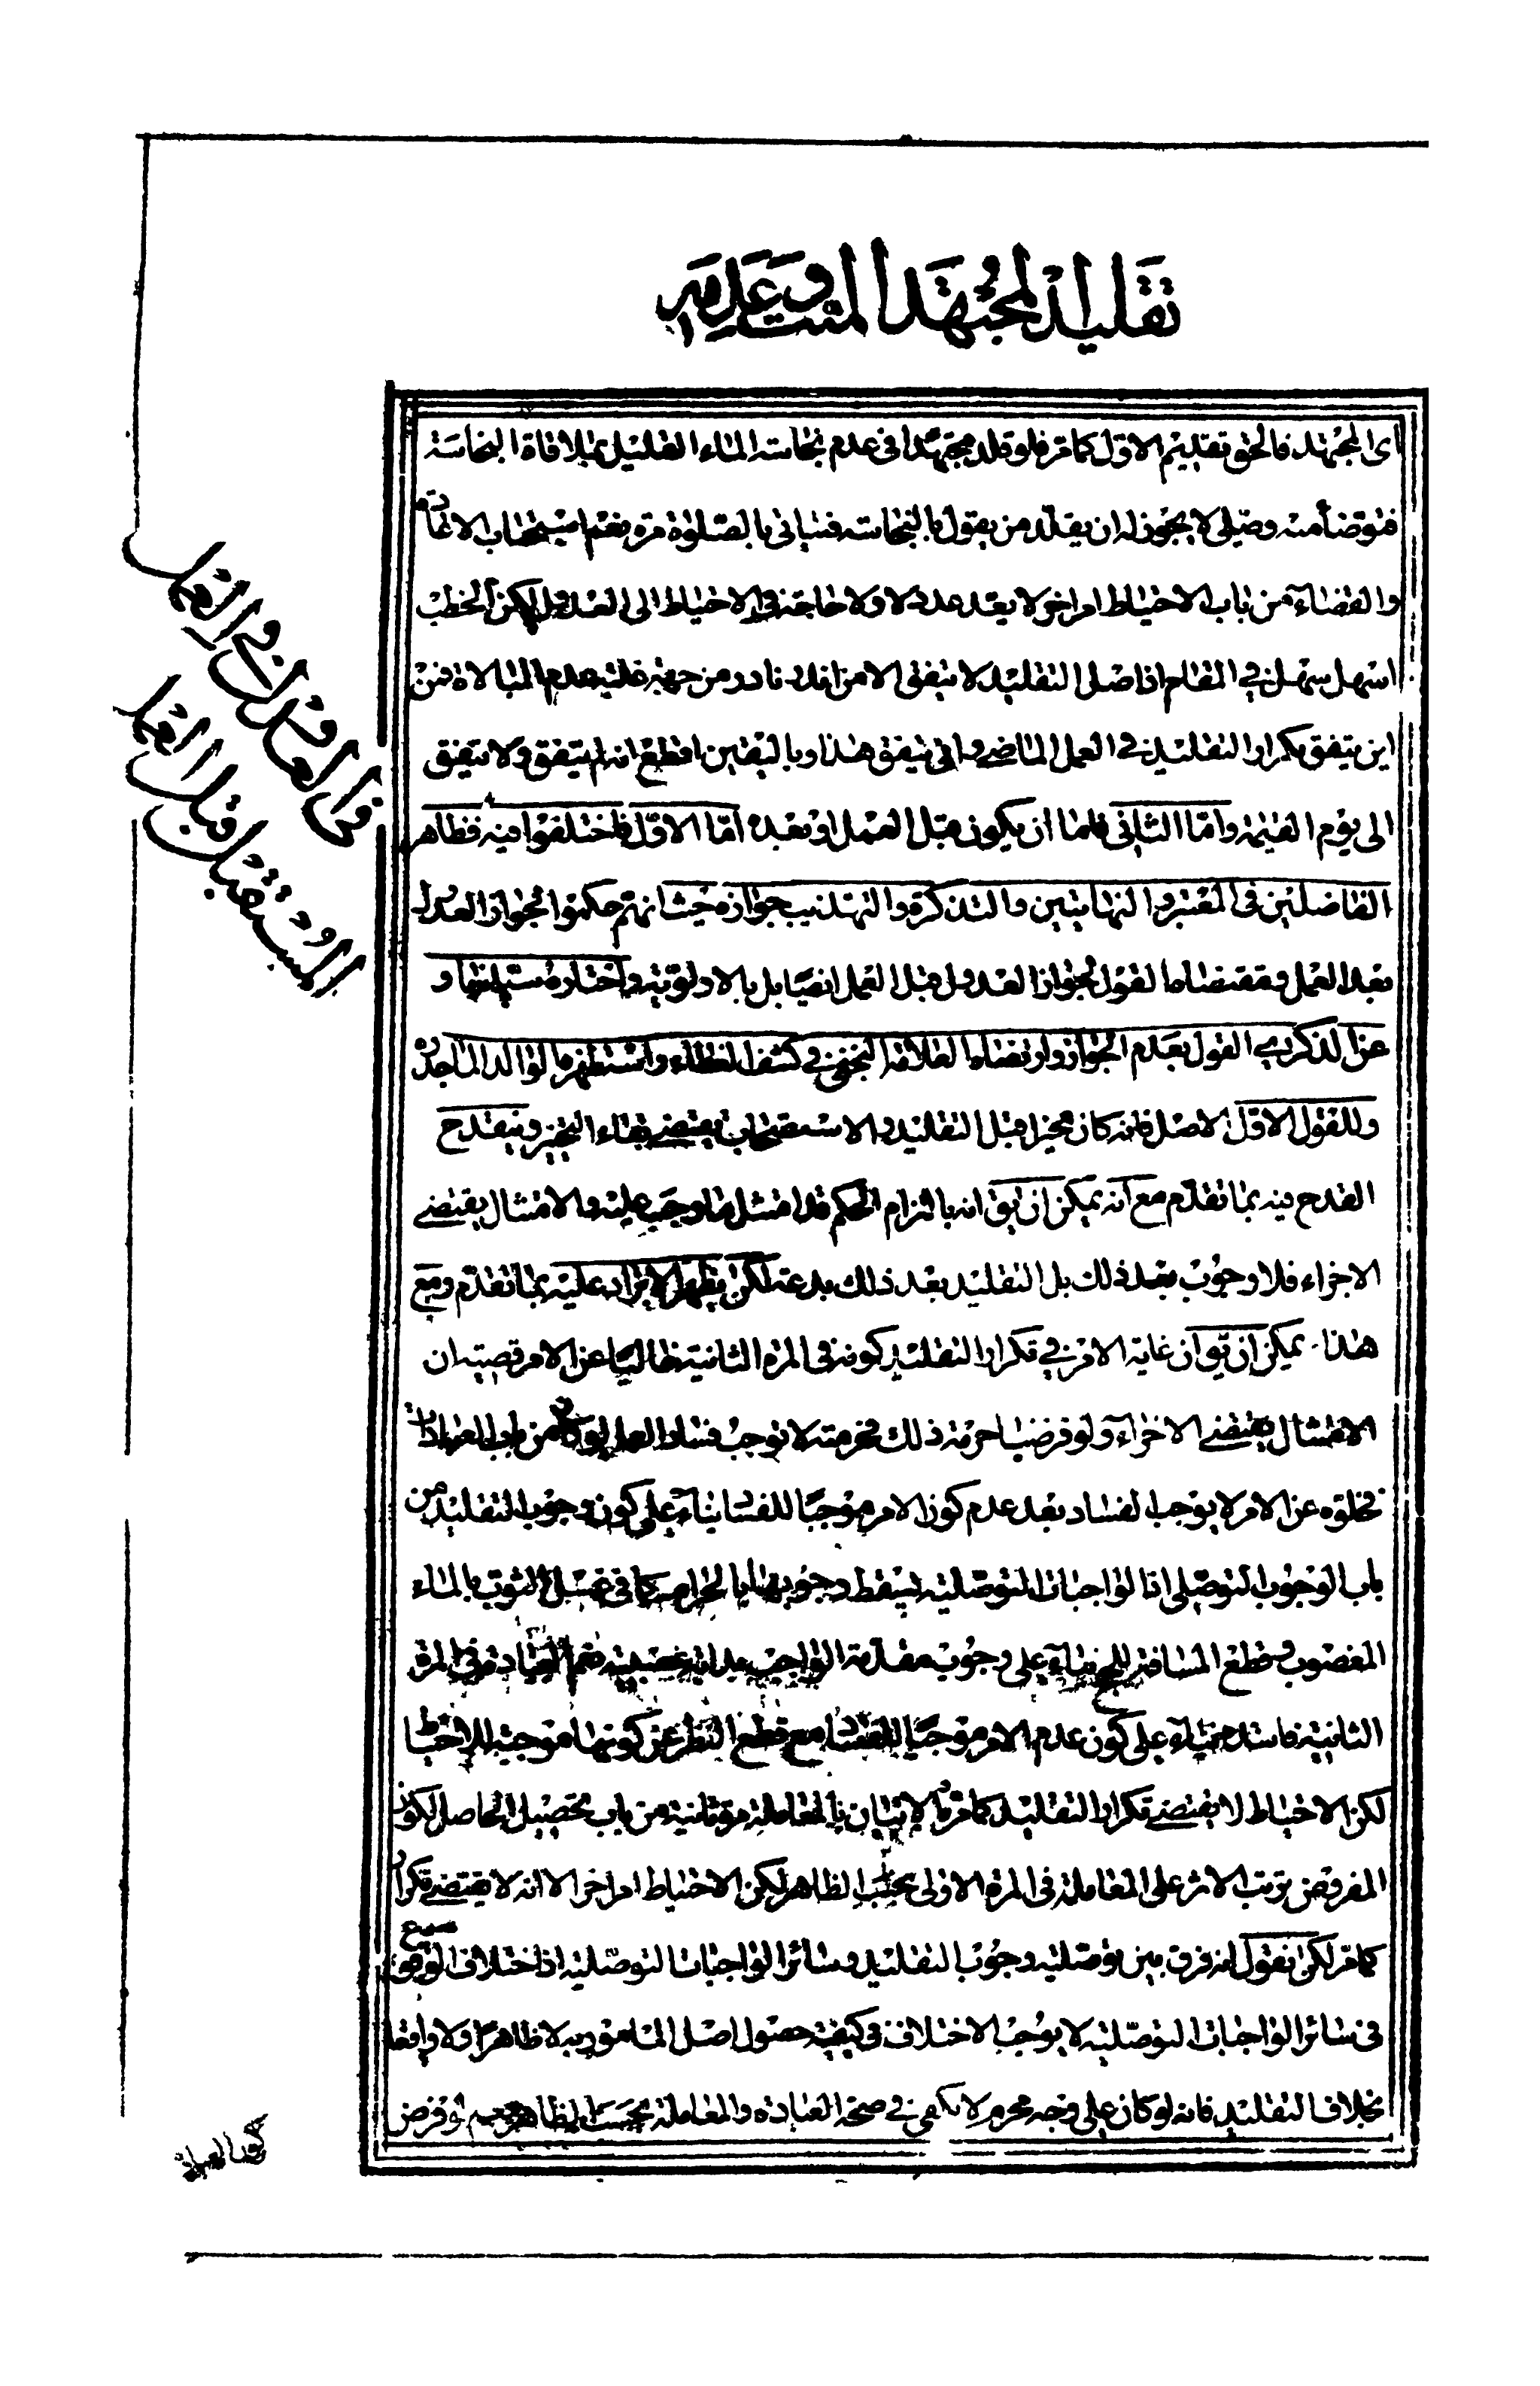 تقليد المجتهد المتساوي وعدمه
اى المجتهد فالحق تقديم الاوّل كما مرّ فلو قلد مجتهدًا فى عدم نجاسة الماء القليل بملاقاة النجاسة
فتوضأ منه وصلّى لا يجوز له ان يقلّد من يقول بالنجاسة فياتى بالصّلوة مرة نعم استحباب الاعادة
والقضاء من باب الاحتياط امر اخر ولا يعد عدولا ولا حاجة فى الاحتياط الى العدول لكن الخطب
اسهل سهل في المقام اذ اصل التقليد لا يتفق الا من افراد نادر من جهة غلبة عدم المبالاة فمن
اين يتفق تكرار التقليد في العمل الماضي وانى يتفق هذا وباليقين اقطع انه لم يتفق ولا يتفق
الى يوم القيمة وامّا الثانى فامّا ان يكون قبل العمل او بعده امّا الاوّل فاختلفوا فيه فظاهر
الفاضلين فى المعتبر والنهايتين والتذكرة والتهذيب جوازه حيث انهم حكموا بجواز العدول
بعد العمل ومقتضاه القول بجواز العدول قبل العمل ايضًا بل بالاولوية واختاره سيّدنا و
عن الذكرى القول بعدم الجواز وارتضاه العلامة النجفى في كشف الغطاء واستظهره الوالد الماجد ره
وللقول الاوّل الاصل فانه كان مخيرا قبل التقليد والاستصحاب يقتضى بقاء التخيير وينقدح
القدح فيه بما تقدّم مع انه يمكن ان يق انه بالتزام الحكم قد امتثل ما وجب عليه والامتثال يقتضي
الاجزاء فلا وجوب بعد ذلك بل التقليد بعد ذلك بدعة لكن يظهر الايراد عليه بما تقدّم ومع
هذا يمكن ان يق ان غاية الامر في تكرار التقليد كونه فى المرة الثانية خاليًا عن الامر قضية ان
الامتثال يقتضي الاجزاء ولو فرضنا حرمة ذلك فحرمته لا توجب فساد العمل لو كان من باب العبادات
فخلوّه عن الامر لا يوجب الفساد بعد عدم كون الامر موجبًا للفساد بناء على كون وجوب التقليد من
باب الوجوب التوصّلى اذ الواجبات التوصّلية يسقط وجوبها بالحرام كما فى غسل الثوب بالماء
المغصوب وقطع المسافة للحج بناء على وجوب مقدّمة الواجب بدابة غصبية نعم العبادة فى المرة
الثانية فاسدة بناء على كون عدم الامر موجبًا للفساد مع قطع النظر عن كونها موجبة للاحتياط
لكن الاحتياط لا يقتضي تكرار التقليد كما مرّ والاتيان بالمعاملة مرة ثانية من باب تحصيل الحاصل لكون
المفروض ترتب الاثر على المعاملة فى المرة الاولى بحسب الظاهر لكن الاحتياط امر اخر الا انه لا يقتضي تكرار
كما مرّ لكن نقول انه فرق بين توصّلية وجوب التقليد وسائر الواجبات التوصّلية اذ اختلاف الوقوع
فى سائر الواجبات التوصّلية لا يوجب الاختلاف في كيفية حصول اصل المامور به لا ظاهرًا ولا واقعا
بخلاف التقليد فانه لو كان على وجه محرم لا يكفى في صحة العبادة والمعاملة بحسب الظاهر نعم لو فرض
فى العدول فى العمل
المستقبل قبل العمل
كون العبادة